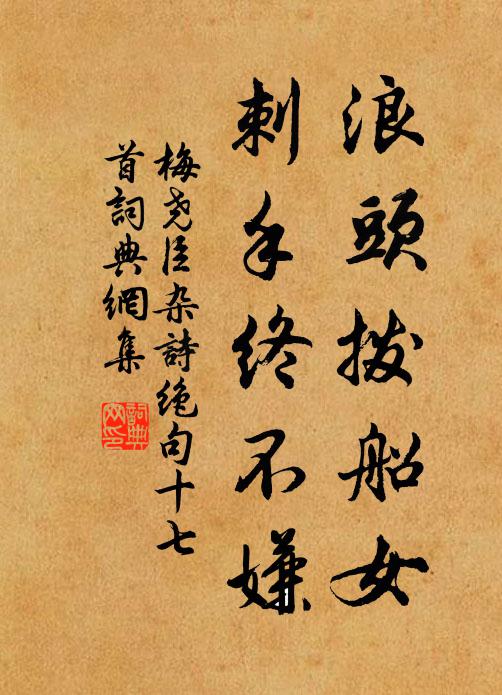 浪頭拨船女
刺手终不嫌
梅尧臣杂詩绝句十七
首詞典網集
詞典
网印